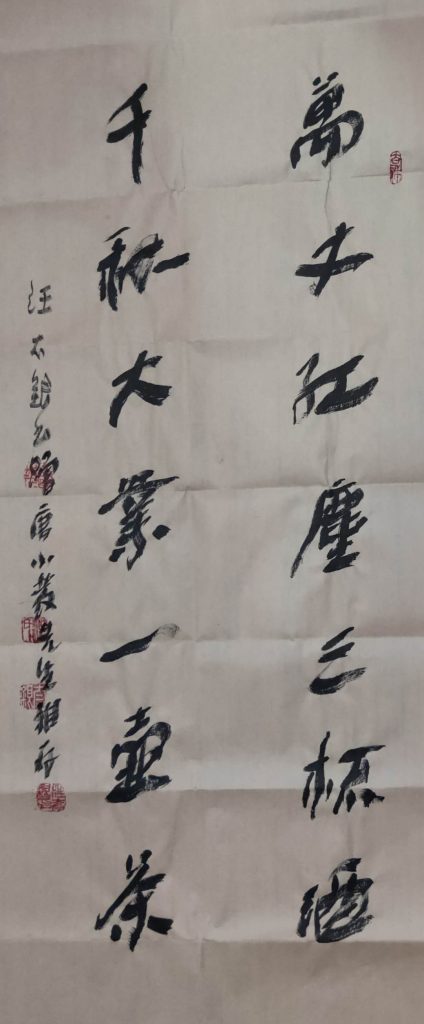 萬丈紅塵三杯酒
千秋大業一壺茶
汪古銀书贈唐小毅先生雅存